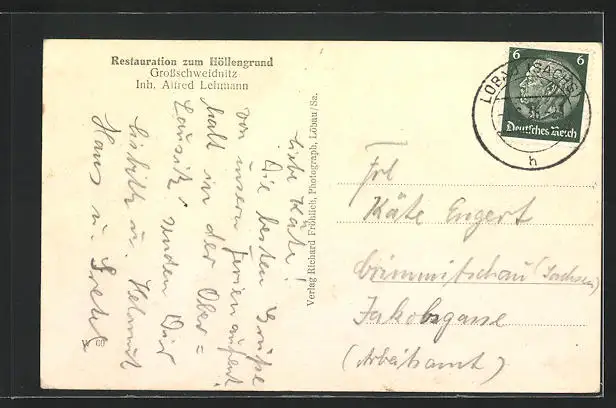 Restauration zum Höllengrund
Großschweidnitz
Inh. Alfred Lehmann
Liebe Käte!
Die besten Grüße
von unserm Ferienaufent
halt in der Ober=
Lausitz senden Dir
Lisbeth u. Helmut
Hans u. Gretel
W 60
Verlag Richard Fröhlich, Photograph, Löbau/Sa.
6 6
Deutsches Reich
LÖBAU (SACHS)
h
Frl
Käte Engert
Crimmitschau (Sachsen)
Jakobsgasse
(Arbeitsamt)